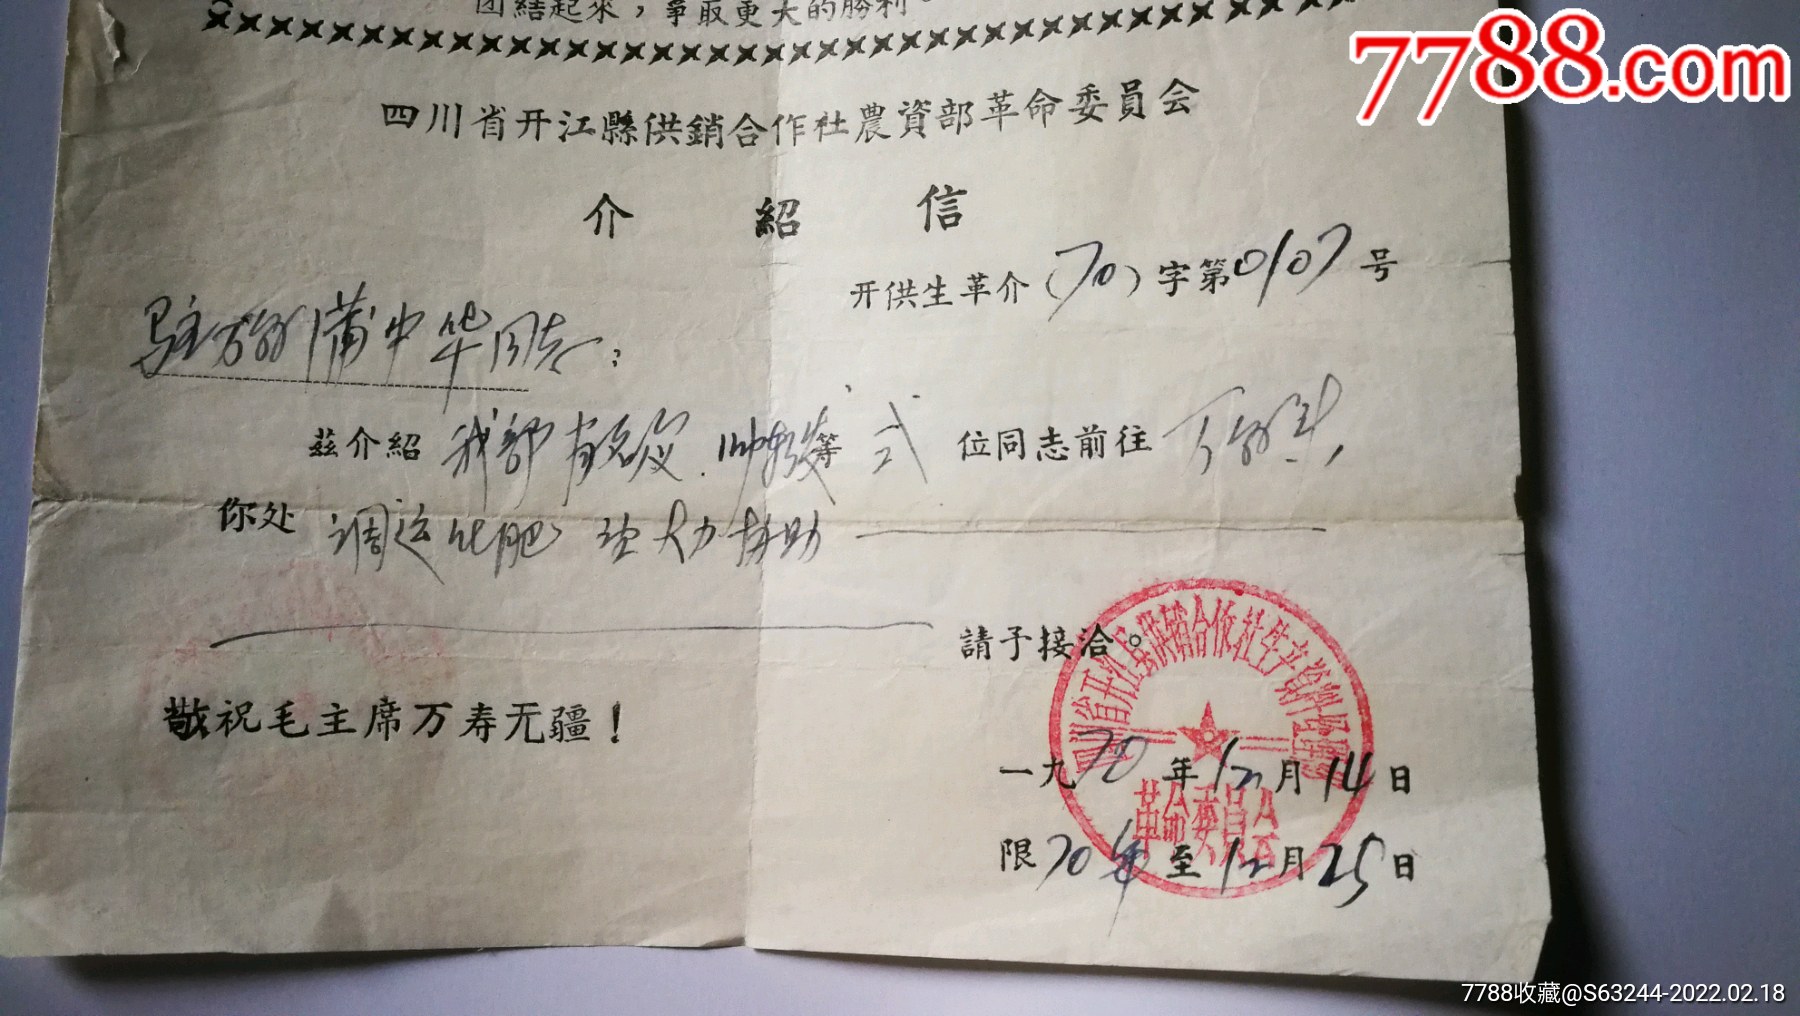 团結起來，爭取更大的勝利。
7788.com
四川省开江縣供銷合作社農資部革命委員会
介紹信
开供生革介(70)字第0107号
蒲中华同志：
茲介紹 我部 等 弍 位同志前往
你处 调运化肥 大力协助
請予接洽。
敬祝毛主席万寿无疆！
四川省开江县供销合作社生产資料经理部
革命委員会
一九70年12月14日
限70年至12月25日
7788收藏@S63244-2022.02.18